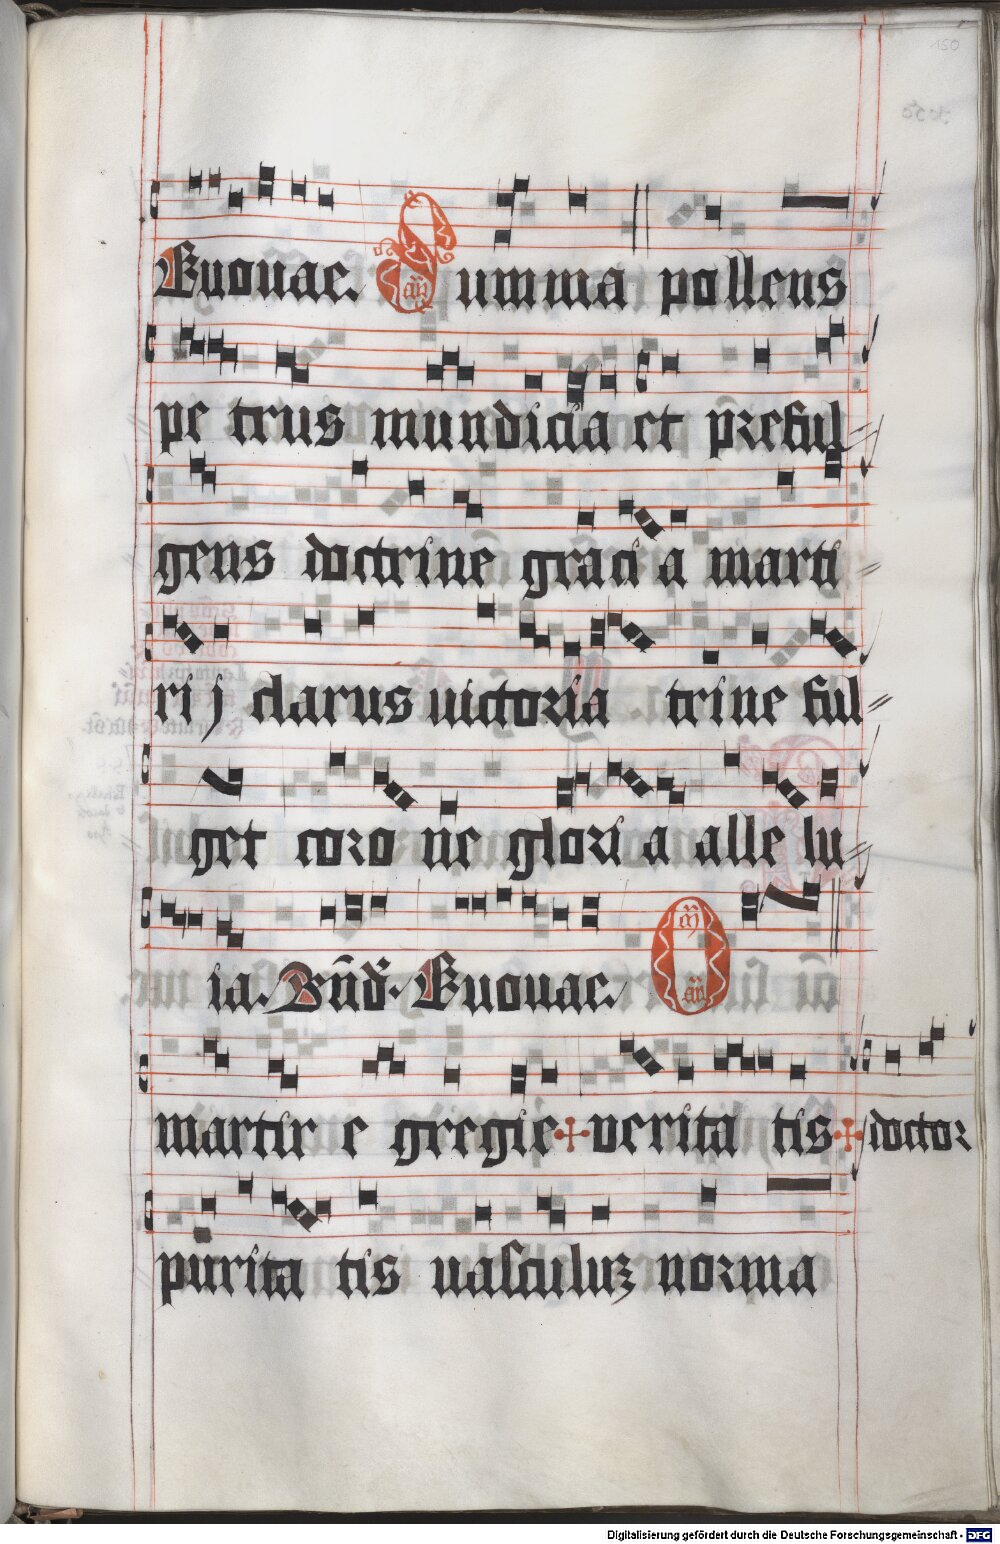 150
Euouae. Summa pollens
an̄
pe trus mundicia et preful
gens doctrine graci a marti
rij clarus uictoria trine ful
get coro ne glori a alle lu
ia. Bn̄d. Euouae. O
an̄
martir e gregie + uerita tis + doctor
purita tis uasculuʒ norma
Digitalisierung gefördert durch die Deutsche Forschungsgemeinschaft - DFG